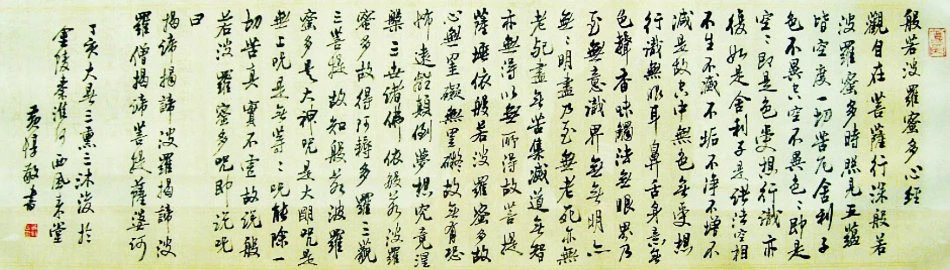 般若波羅蜜多心經
觀自在菩薩行深般若
波羅蜜多時照見五蘊
皆空度一切苦厄舍利子
色不異空〻不異色〻即是
空〻即是色受想行識亦
復如是舍利子是諸法空相
不生不滅不垢不淨不增不
減是故空中無色無受想
行識無眼耳鼻舌身意無
色聲香味觸法無眼界乃
至無意識界無無明亦
無〻明盡乃至無老死亦無
老死盡無苦集滅道無智
亦無得以無所得故菩提
薩埵依般若波羅蜜多故
心無罣礙無罣礙故無有恐
怖遠離顛倒夢想究竟涅
槃三世諸佛依般若波羅
蜜多故得阿耨多羅三藐
三菩提故知般若波羅
蜜多是大神呪是大明呪是
無上呪是無等〻呪能除一
切苦真實不虛故說般
若波羅蜜多呪即說呪
曰
揭諦揭諦波羅揭諦波
羅僧揭諦菩提薩婆訶
丁亥大春三熏三沐後於
金陵秦淮河西風来堂
敬書